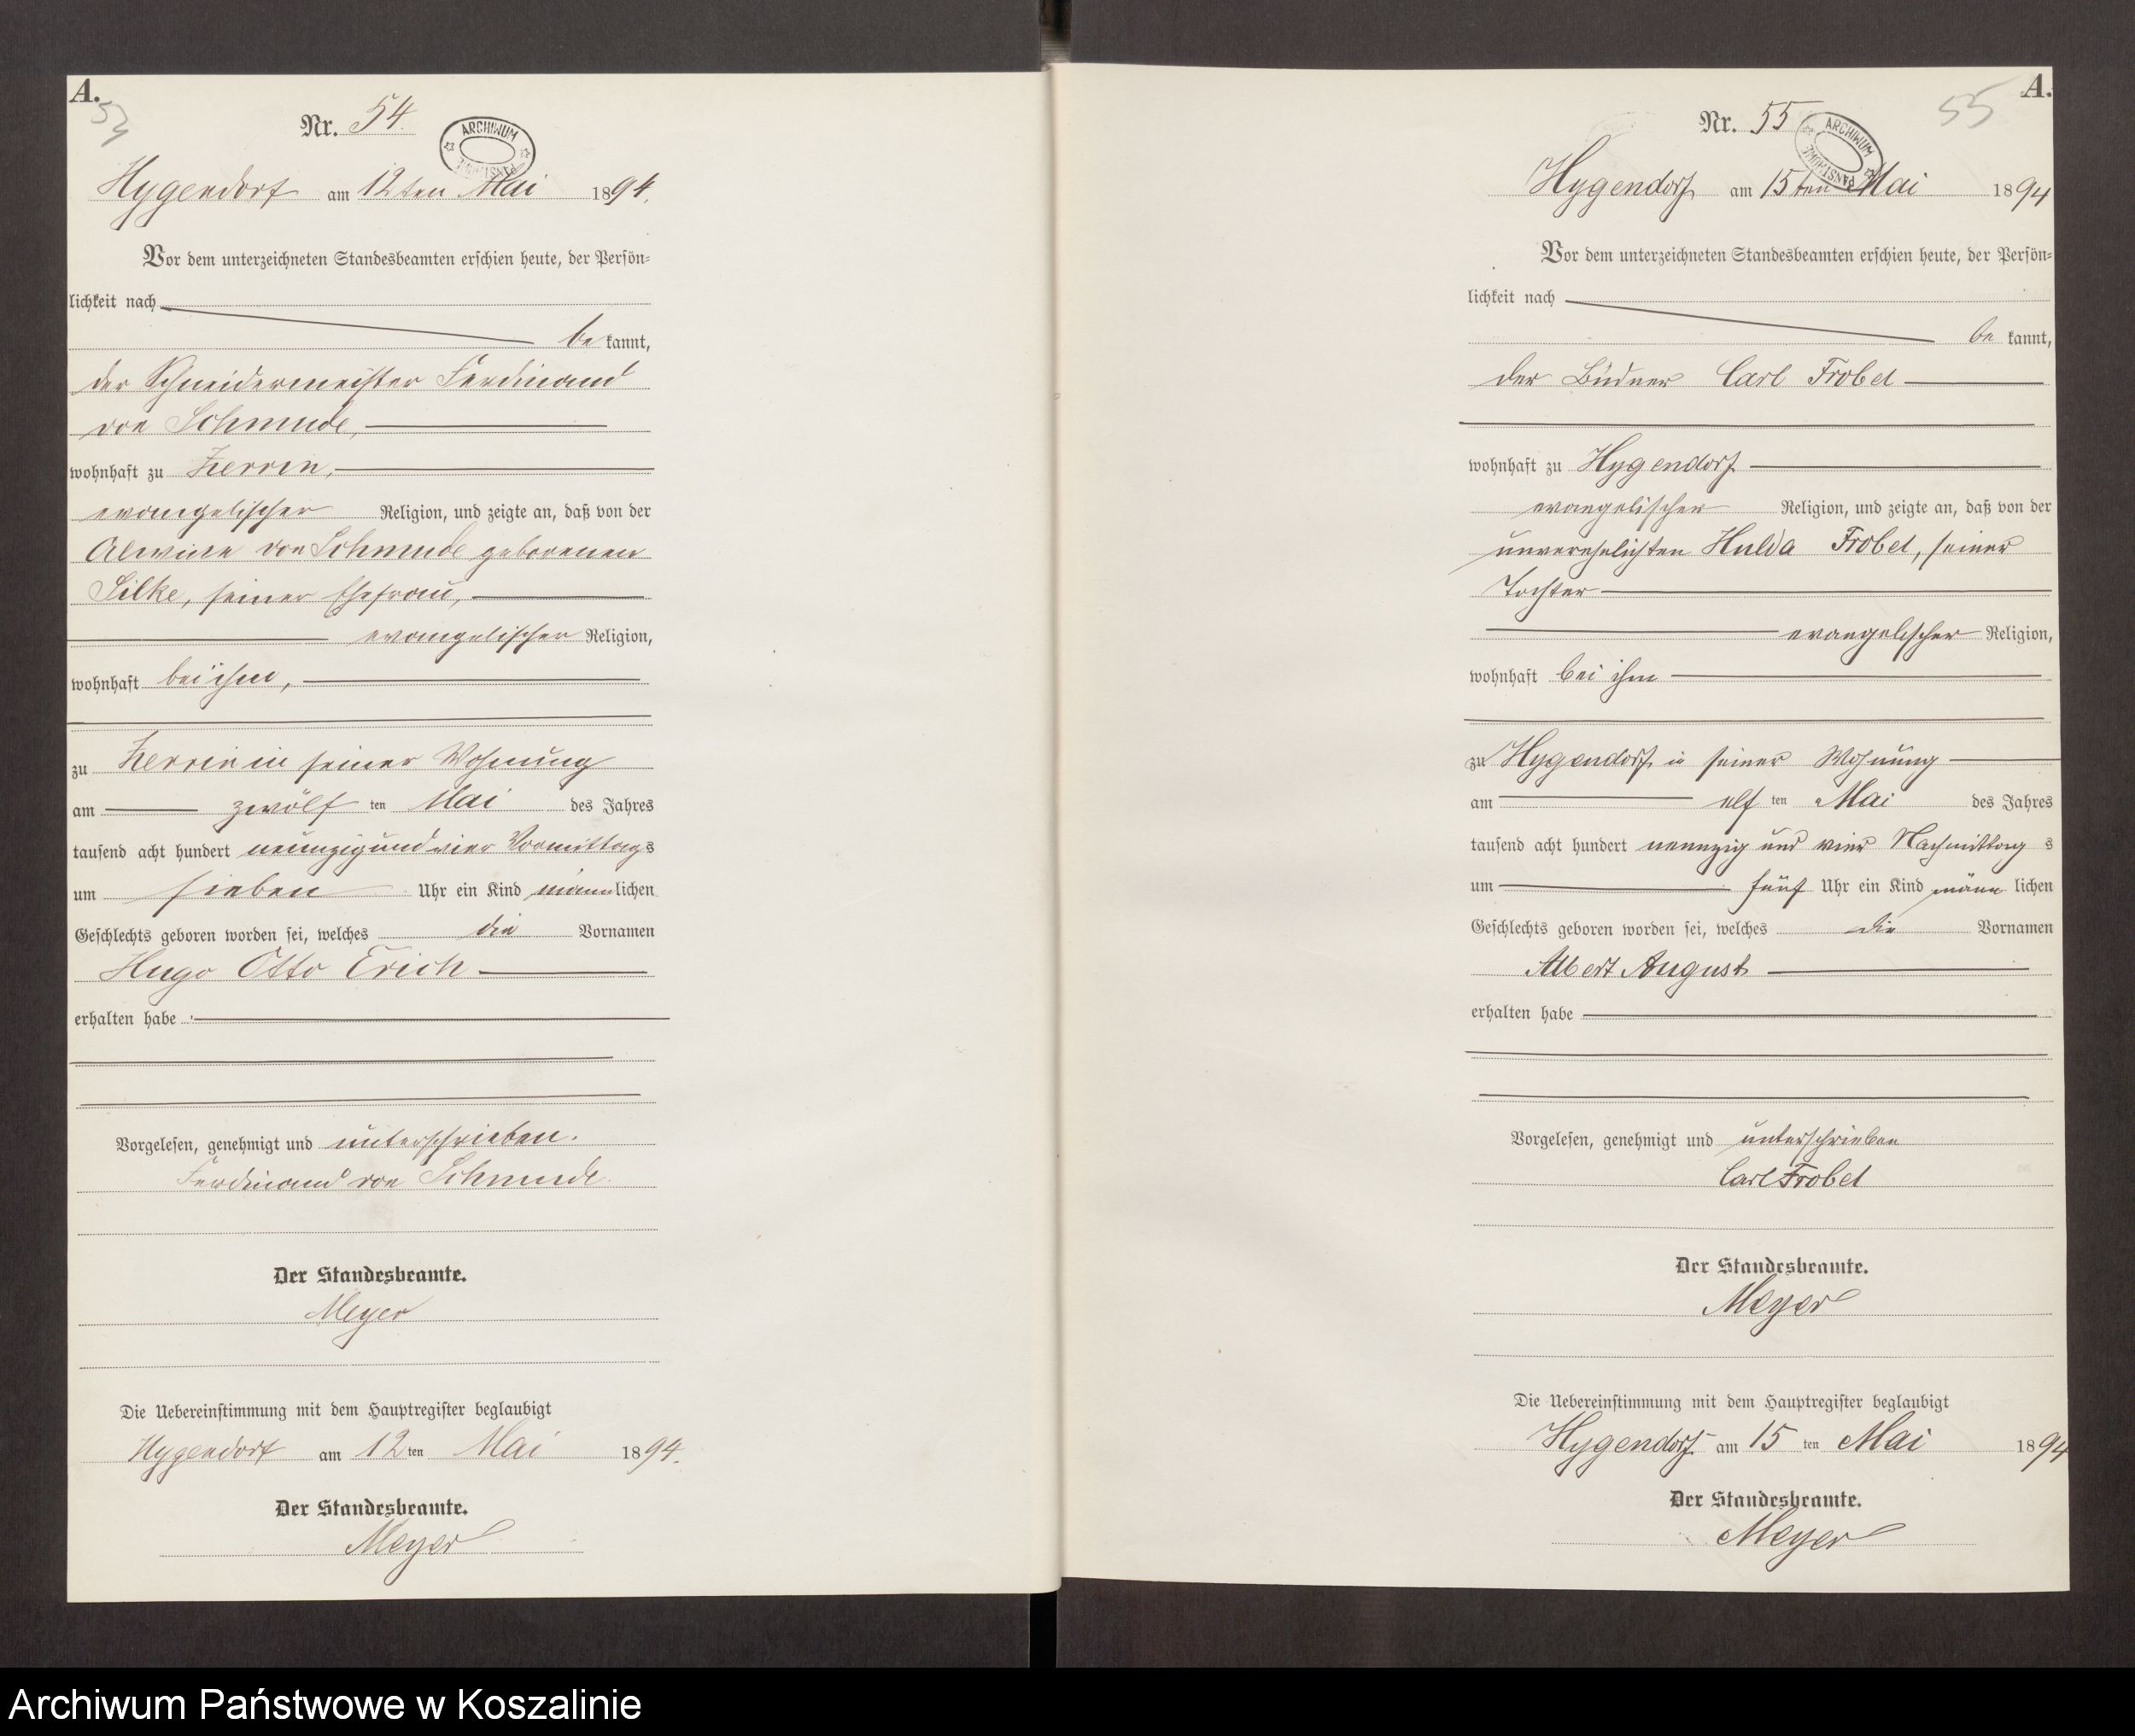 A.
54
Nr. 54.
ARCHIWUM PAŃSTWOWE
Hygendorf am 12ten Mai 1894.
Vor dem unterzeichneten Standesbeamten erschien heute, der Persön-
lichkeit nach
be kannt,
der Schneidermeister Ferdinand
von Schmude,
wohnhaft zu Zierrin,
evangelischer Religion, und zeigte an, daß von der
Alwine von Schmude geborenen
Silke, seiner Ehefrau,
evangelischer Religion,
wohnhaft bei ihm,
zu Zierrin in seiner Wohnung
am zwölf ten Mai des Jahres
tausend acht hundert neunzig und vier Vormittags
um sieben Uhr ein Kind männlichen
Geschlechts geboren worden sei, welches die Vornamen
Hugo Otto Erich
erhalten habe.
Vorgelesen, genehmigt und unterschrieben.
Ferdinand von Schmude.
Der Standesbeamte.
Meyer
Die Uebereinstimmung mit dem Hauptregister beglaubigt
Hygendorf am 12 ten Mai 1894.
Der Standesbeamte.
Meyer
A.
55
Nr. 55
ARCHIWUM PAŃSTWOWE
Hygendorf am 15ten Mai 1894
Vor dem unterzeichneten Standesbeamten erschien heute, der Persön-
lichkeit nach
be kannt,
der Büdner Carl Frobel
wohnhaft zu Hygendorf
evangelischer Religion, und zeigte an, daß von der
unverehelichten Hulda Frobel, seiner
Tochter
evangelischer Religion,
wohnhaft bei ihm
zu Hygendorf in seiner Wohnung
am elf ten Mai des Jahres
tausend acht hundert neunzig und vier Nachmittag s
um fünf Uhr ein Kind männ lichen
Geschlechts geboren worden sei, welches die Vornamen
Albert August
erhalten habe
Vorgelesen, genehmigt und unterschrieben
Carl Frobel
Der Standesbeamte.
Meyer
Die Uebereinstimmung mit dem Hauptregister beglaubigt
Hygendorf am 15 ten Mai 1894
Der Standesbeamte.
Meyer
Archiwum Państwowe w Koszalinie